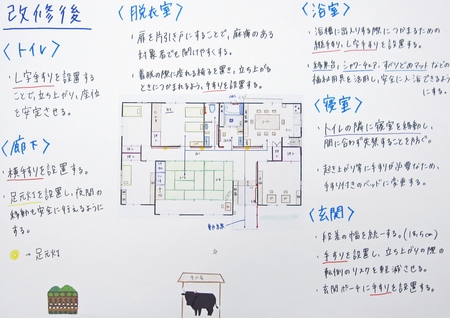 改修後
〈トイレ〉
・L字手すりを設置する
ことで、立ち上がり、座位
を安定させる。
〈廊下〉
・横手すりを設置する。
・足元灯を設置し、夜間の
移動も安全に行えるように
する。
→足元灯
〈脱衣室〉
・扉を片引き戸にすることで、麻痺のある
対象者でも開けやすくする。
・着脱の際に座れる椅子を置き、立ち上がる
ときにつかまれるよう、手すりを設置する。
〈浴室〉
・浴槽に出入りする際につかまるための
縦手すり、L字手すりを設置する。
・シャワーチェア、すべり止めマットなどの
福祉用具を活用し、安全に入浴できるように
する。
〈寝室〉
・トイレの隣に寝室を移動し、
間に合わず失禁することを防ぐ。
・起き上がり等に手すりが必要なため、
手すり付きのベッドに変更する。
〈玄関〉
・段差の幅を統一する。
・手すりを設置し、立ち上がりの際の
転倒のリスクを軽減させる。
・玄関ポーチに手すりを設置する。